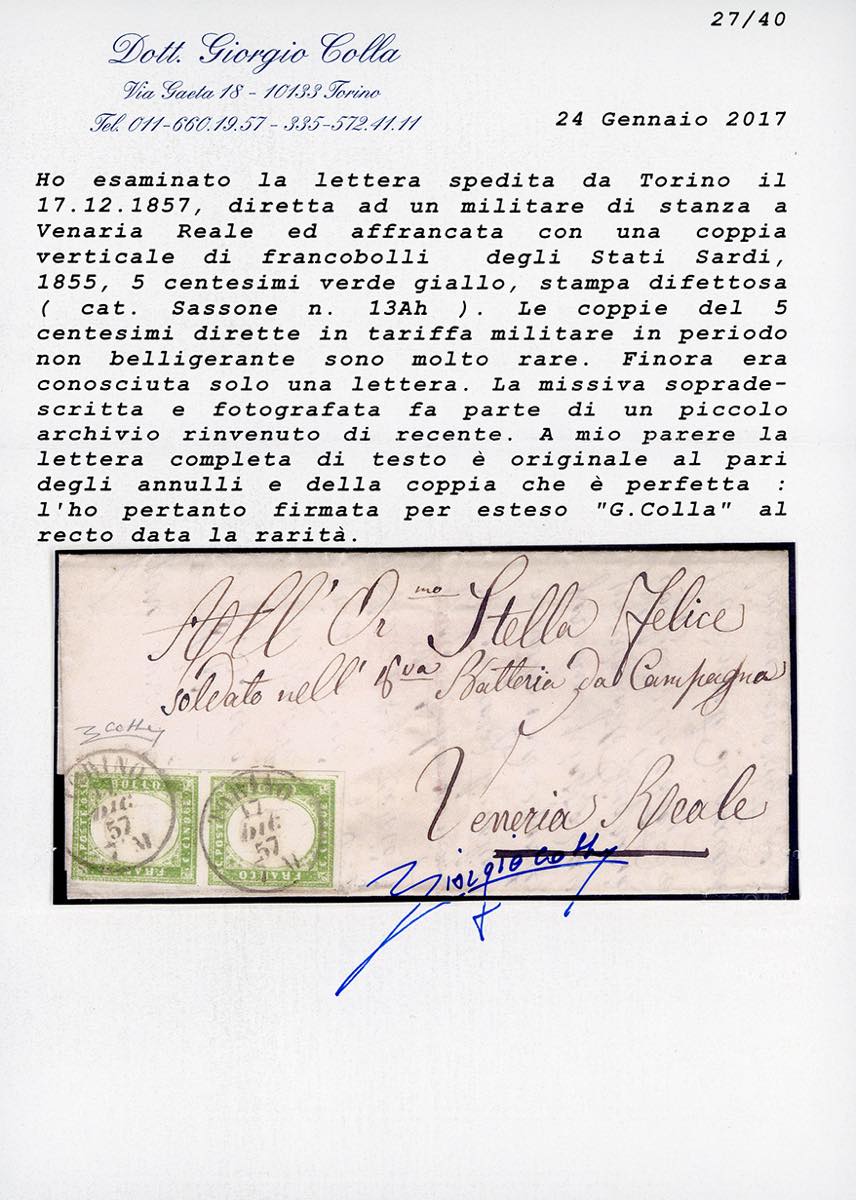 27/40
Dott. Giorgio Colla
Via Gaeta 18 - 10133 Torino
Tel. 011-660.19.57 - 335-572.41.11
24 Gennaio 2017
Ho esaminato la lettera spedita da Torino il
17.12.1857, diretta ad un militare di stanza a
Venaria Reale ed affrancata con una coppia
verticale di francobolli degli Stati Sardi,
1855, 5 centesimi verde giallo, stampa difettosa
( cat. Sassone n. 13Ah ). Le coppie del 5
centesimi dirette in tariffa militare in periodo
non belligerante sono molto rare. Finora era
conosciuta solo una lettera. La missiva soprade-
scritta e fotografata fa parte di un piccolo
archivio rinvenuto di recente. A mio parere la
lettera completa di testo è originale al pari
degli annulli e della coppia che è perfetta :
l'ho pertanto firmata per esteso "G.Colla" al
recto data la rarità.
All' Or.mo Stella Felice
soldato nell' Batteria da Campagna
Veneria Reale
G Colla
TORINO
17
DIC
57
7 M
TORINO
17
DIC
57
7 M
C. POSTE
FRANCO
C. CINQUE
C. POSTE
FRANCO
C. CINQUE
Giorgio Colla